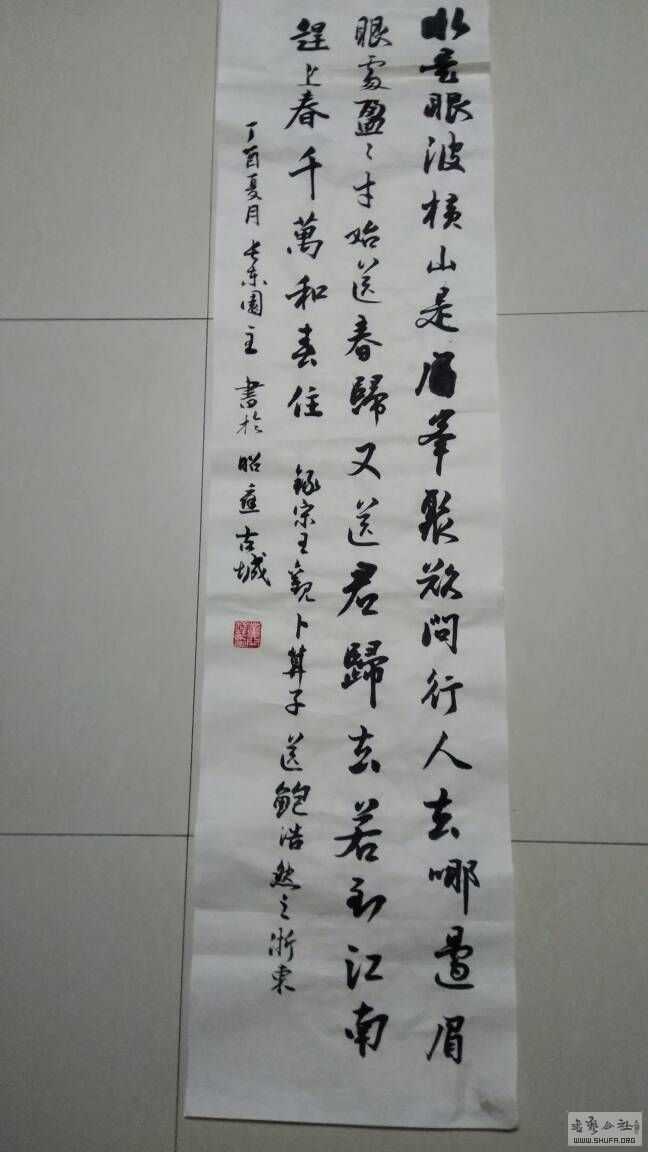 水是眼波橫山是眉峯聚欲問行人去哪邊眉
眼處盈〻才始送春歸又送君歸去若到江南
趕上春千萬和春住 錄宋王觀卜算子送鮑浩然之浙東
丁酉夏月 长东園主 書於昭應古城
書藝公社
WWW.SHUFA.ORG